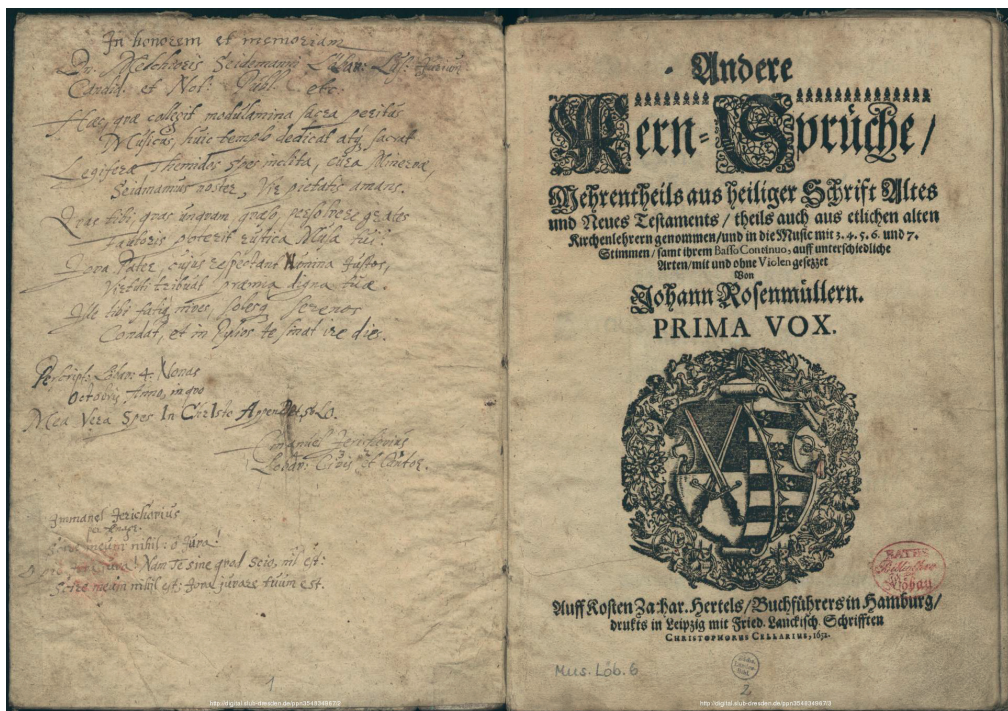 In honorem et memoriam
Dn. Melchioris Seidemanni Löbav: Lus:
Candid: et Not: Publ: etc:
Hac, quæ collegit modulamina sacra peritus
Musicus, huic templo dedicat atq; sacrat
Legiferæ Themidos spes inclita, cura Minervæ,
Seidmannus noster, Vir pietatis amans.
tibi, quas unquam persolvere grates
Fautoris poterit rustica Musa tui?
Jova Pater, cujus respectant Numina justos,
Virtuti tribuat præmia digna tuæ.
Ille tibi nives, solesq; serenos
Condat, et in Pylios te sinat ire dies.
Perscript. Löbav: 4. Nonas
Octobris, Anno, in quo
Mea Vera Spes In ChrIsto
Emanuel Jerichovius
Löbav: Civis, et Cantor.
Immanel Jerichovius
meum nihil: o Jova!
Nam Te sine quod scio, nil est:
meum nihil est; Jova juvare tuum est.
1
Andere
Kern-Sprüche/
Mehrentheils aus heiliger Schrift Altes
und Neues Testaments/ theils auch aus etlichen alten
Kirchenlehrern genommen/und in die Music mit 3. 4. 5. 6. und 7.
Stimmen/ samt ihrem Basso Continuo, auff unterschiedliche
Arten/mit und ohne Violen gesetzet
Von
Johann Rosenmüllern.
PRIMA VOX.
RATHS
Bibliothek
Löbau
Auff Kosten Zachar. Hertels/ Buchführers in Hamburg/
drukts in Leipzig mit Fried. Lanckisch. Schrifften
CHRISTOPHORUS CELLARIUS, 1652.
Mus. Löb. 6
2
http://digital.slub-dresden.de/ppn354834967/3
http://digital.slub-dresden.de/ppn354834967/3